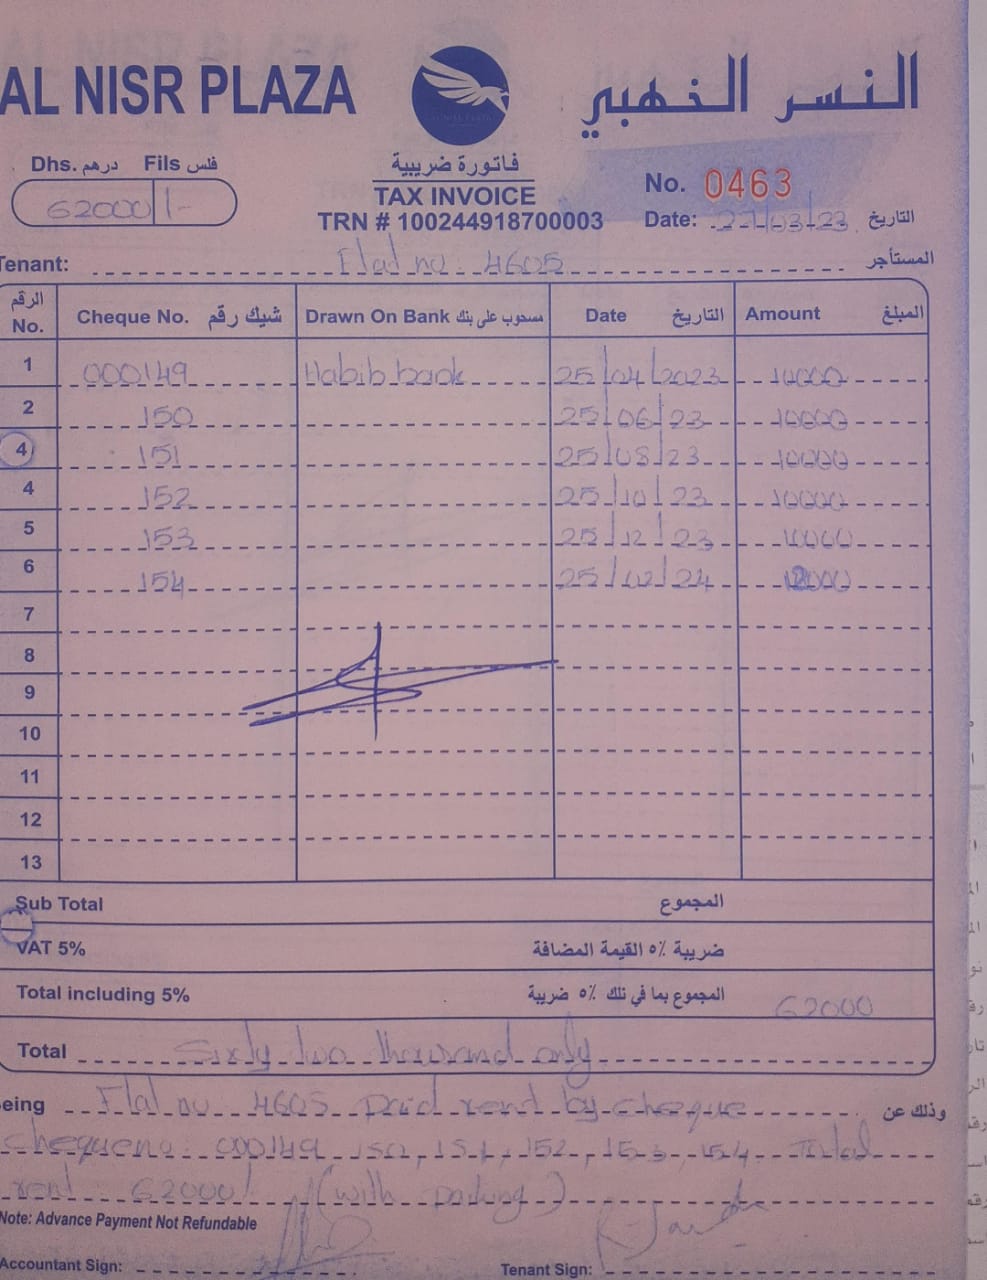 AL NISR PLAZA
النسر الذهبي
Dhs. درهم Fils فلس
62000 /-
فاتورة ضريبية
TAX INVOICE
TRN # 100244918700003
No. 0463
Date: 27/03/23 التاريخ
Tenant: Flat no. 4605 المستأجر
الرقم No. Cheque No. شيك رقم Drawn On Bank مسحوب على بنك Date التاريخ Amount المبلغ
1 000149 Habib bank 25/04/2023 10000
2 150 25/06/23 10000
4 151 25/08/23 10000
4 152 25/10/23 10000
5 153 25/12/23 10000
6 154 25/02/24 12000
7
8
9
10
11
12
13
Sub Total المجموع
VAT 5% ضريبة ٥% القيمة المضافة
Total including 5% المجموع بما في ذلك ٥% ضريبة 62000
Total Sixty two thousand only
eing Flat no 4605 paid rent by cheque وذلك عن
cheque no. 000149, 150, 151, 152, 153, 154. Total
rent 62000/ (with parking)
Note: Advance Payment Not Refundable
Accountant Sign:
Tenant Sign: